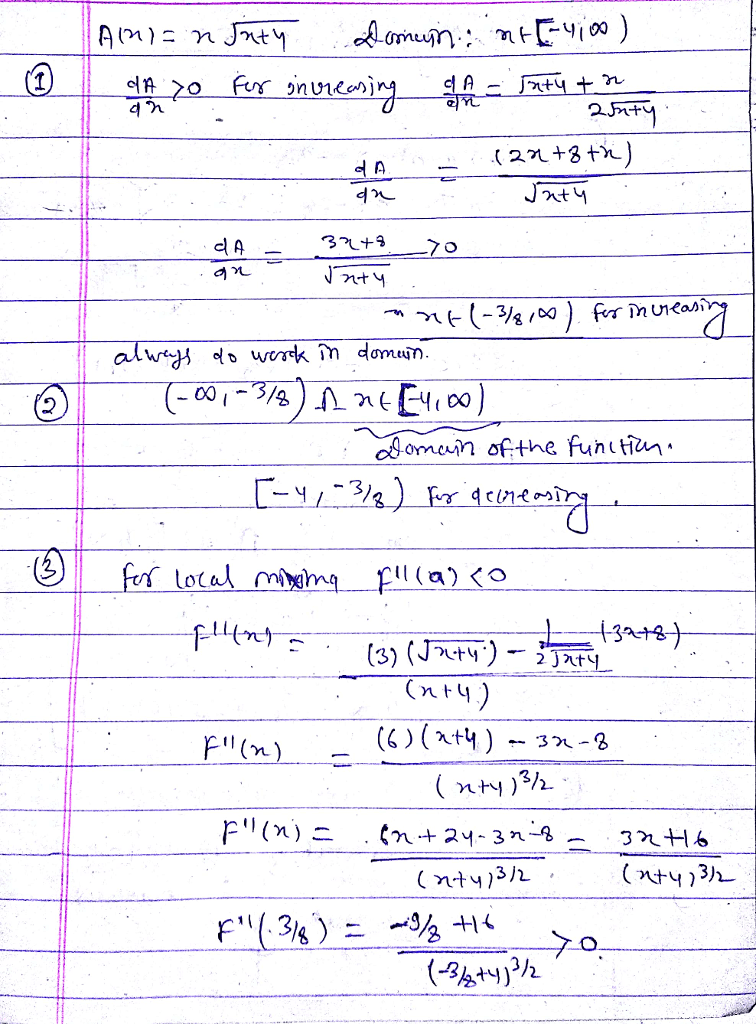 A(x) = x √x+4 Domain: x∈[-4,∞)
① dA/dx >0 for increasing dA/dx = √x+4 + x/2√x+4
dA/dx = (2x+8+x)/√x+4
dA/dx = 3x+8/√x+4 >0
x∈(-3/8,∞) for increasing
always do work in domain.
② (-∞,-3/8) ∩ x∈[-4,∞)
Domain of the function.
[-4,-3/8) for decreasing.
③ for local F''(a)<0
F''(x) = (3)(√x+4) - 1/2√x+4 (3x+8)/(x+4)
F''(x) = (6)(x+4) - 3x-8/(x+4)3/2
F''(x) = 6x+24-3x-8/(x+4)3/2 = 3x+16/(x+4)3/2
F''(-3/8) = -9/8 +16/(-3/8+4)3/2 >0.